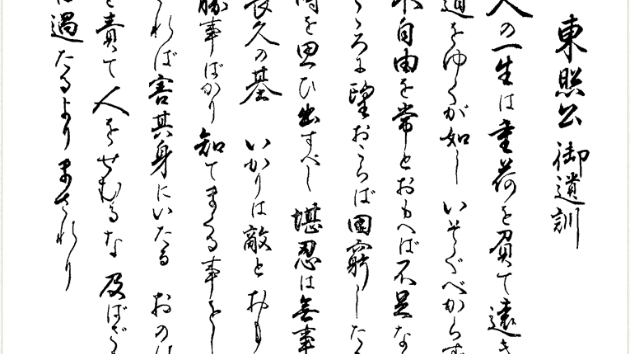 東照公御遺訓
人の一生は重荷を負て遠き
道をゆくが如し いそぐべからず
不自由を常とおもへば不足な
こゝろに望おこらば困窮したる
時を思ひ出すべし 堪忍は無事
長久の基 いかりは敵とおも
勝事ばかり知てまくる事をし
れば害其身にいたる おのれ
を責て人をせむるな 及ばざる
は過たるよりまされり